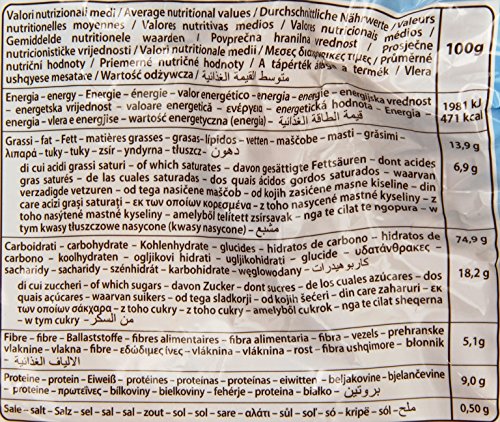 Valori nutrizionali medi / Average nutritional values / Durchschnittliche Nährwerte / Valeurs
nutritionelles moyennes / Valores nutritivas medios / Valores nutricionais médios /
Gemiddelde nutritionele waarden / Povprečna hranilna vrednost / Prosječne
nutricionističke vrijednosti / Valori nutritionale medii / Μεσες διατροφικες τιμες / Průměrné
nutriční hodnoty / Priemerné nutričné hodnoty / A tápérték a termék / Vlera
ushqyese mesatare / Wartość odżywcza / متوسط القيمة الغذائية
100g
Energia - energy - Energie - énergie - valor energético - energia - energie - energijska vrednost
- energetska vrijednost - valoare energetică - ενέργεια - energetická hodnota - Energia -
energia - vlera e energjise - wartość energetyczna (energia) - قيمة الطاقة الغذائية
1981 kJ
471 kcal
Grassi - fat - Fett - matières grasses - grasas - lípidos - vetten - maščobe - masti - grăsimi -
λιπαρά - tuky - tuky - zsír - yndyrna - tłuszcz - دهون
13,9 g
di cui acidi grassi saturi - of which saturates - davon gesättigte Fettsäuren - dont acides
gras saturés - de las cuales saturadas - dos quais ácidos gordos saturados - waarvan
verzadigde vetzuren - od tega nasičene maščob - od kojih zasićene masne kiseline - din
care acizi grași saturați - εκ των οποίων κορεσμένα - z toho nasycené mastné kyseliny - z
toho nasýtené mastné kyseliny - amelyből telített zsírsavak - nga te cilat te ngopura - w
tym kwasy tłuszczowe nasycone (kwasy nasycone) - مشبع
6,9 g
Carboidrati - carbohydrate - Kohlenhydrate - glucides - hidratos de carbono - hidratos de
carbono - koolhydraten - ogljikovi hidrati - ugljikohidrati - glucide - υδατάνθρακες -
sacharidy - sacharidy - szénhidrát - karbohidrate - węglowodany - كاربوهيدرات
74,9 g
di cui zuccheri - of which sugars - davon Zucker - dont sucres - de los cuales azúcares - dos
quais açúcares - waarvan suikers - od tega sladkorji - od kojih šećeri - din care zaharuri - εκ
των οποίων σάκχαρα - z toho cukry - z toho cukry - amelyből cukrok - nga te cilat sheqerna
- w tym cukry - من السكر
18,2 g
Fibre - fibre - Ballaststoffe - fibres alimentaires - fibra alimentaria - fibra - vezels - prehranske
vlaknine - vlakna - fibre - εδώδιμες ίνες - vláknina - vláknina - rost - fibra ushqimore - błonnik
- الالياف الغذائية
5,1g
Proteine - protein - Eiweiß - protéines - proteínas - proteínas - eiwitten - beljakovine - bjelančevine
- proteine - πρωτεΐνες - bílkoviny - bielkoviny - fehérje - proteina - białko - بروتين
9,0 g
Sale - salt - Salz - sel - sal - sal - zout - sol - sol - sare - αλάτι - sůl - soľ - só - kripë - sól - ملح
0,50 g